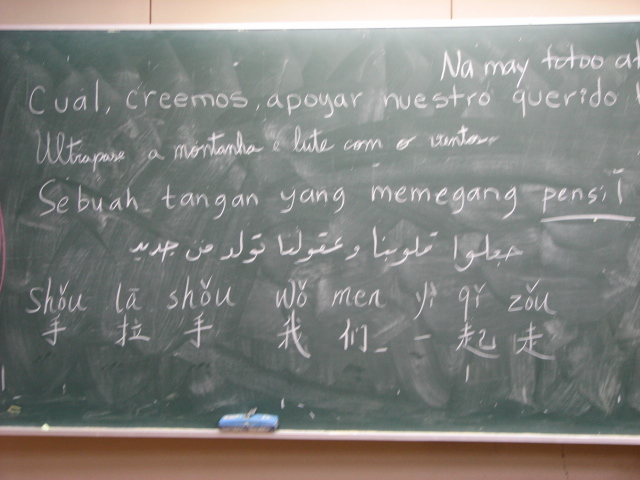 Na may totoo at
Cual, creemos, apoyar nuestro querido
Ultrapasse a montanha e lute com o vento
Sebuah tangan yang memegang pensil
جعلوا قلوبنا وعقولنا تولد من جديد
shǒu lā shǒu wǒ men yì qǐ zǒu
手 拉 手 我 们 一 起 走